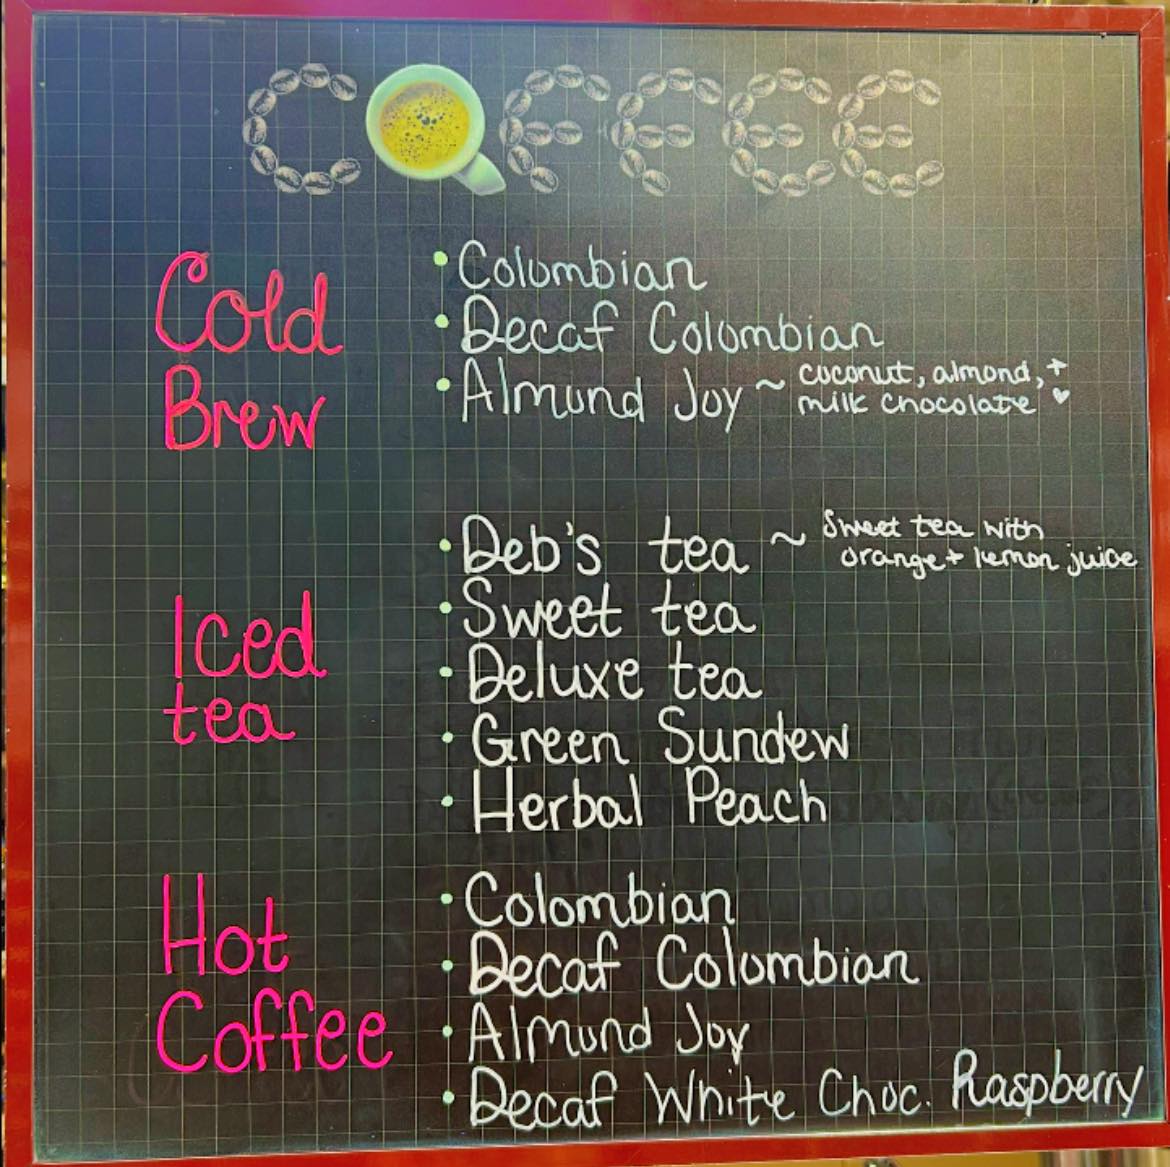 COFFEE
Cold
Brew
• Colombian
• Decaf Colombian
• Almond Joy ~ coconut, almond, +
milk chocolate ♥
Iced
tea
• Deb's tea ~ Sweet tea with
orange + lemon juice
• Sweet tea
• Deluxe tea
• Green Sundew
• Herbal Peach
Hot
Coffee
• Colombian
• Decaf Colombian
• Almond Joy
• Decaf White Choc. Raspberry